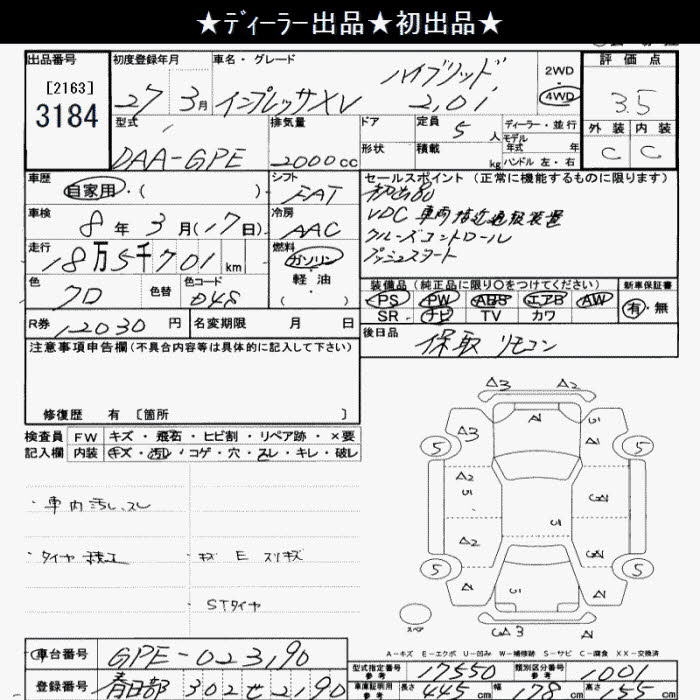 ★ディーラー出品★初出品★
出品番号 初度登録年月 車名・グレード ハイブリッド 2WD 評価点
[2163] 27 3月 インプレッサXV 2.0i 4WD 3.5
3184 型式 排気量 ドア 定員 5人 ディーラー・並行 外装 内装
DAA-GPE 2000cc 形状 積載 kg モデル年式 年 C C
ハンドル 左・右
車歴 自家用・( ) シフト FAT セールスポイント (正常に機能するものに限ります)
初出品
車検 8年 3月(17日) 冷房 AAC VDC 車両接近通報装置
走行 18万5千701km 燃料 ガソリン・軽油・( ) クルーズコントロール
プッシュスタート
色 クロ 色替 色コード D4S 装備品 (純正品に限り○をつけてください) 新車保証書
PS PW ABS エアB AW 有・無
R券 12030円 名変期限 月 日 SR ナビ TV カワ
注意事項申告欄(不具合内容等は具体的に記入して下さい) 後日品 保取 リモコン
修復歴 有 [箇所 ]
検査員 FW キズ・飛石・ヒビ割・リペア跡・×要
記入欄 内装 キズ・汚レ・コゲ・穴・スレ・キレ・破レ
・車内汚レ、スレ
・タイヤ積込 ・キズ E スリキズ
・STタイヤ
△3 △2
A1 U1 A1
△3
5 5
A2
U1
A2
U1
A1
5 5
A1 U1 A1
スペア
△3 A1
A-キズ E-エクボ U-凹み W-補修跡 S-サビ C-腐食 XX-交換済
車台番号 GPE-023190 型式指定番号 参考 17550 類別区分番号 参考 1001
登録番号 春日部 302 せ 2190 車庫証明用 参考 長さ 445cm 幅 178cm 高さ 155cm